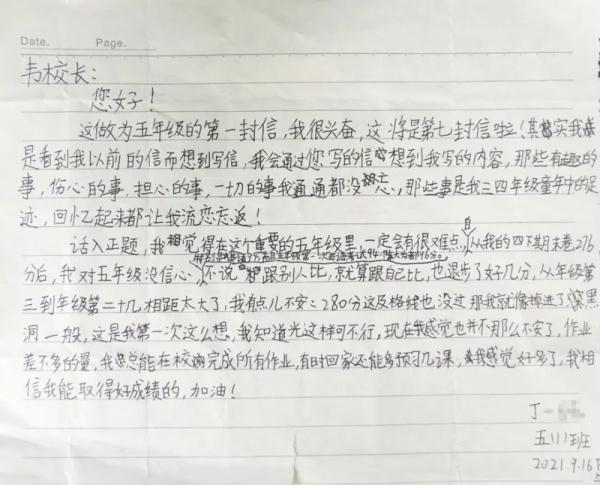 Date. Page.
韦校长：
您好！
这做为五年级的第一封信，我很兴奋，这将是第七封信啦！其实我
是看到我以前的信而想到写信，我会通过您写的信想到我写的内容，那些有趣的
事，伤心的事，担心的事，一切的事我通通都没忘，那些事是我三四年级童年中的足
迹，回忆起来都让我流恋忘返！
话入正题，我觉得在这个重要的五年级里，一定会有很难点，自从我的四下期末卷276
分后，我对五年级没信心，不说跟别人比，就算跟自比，也退步了好几分，从年级第
三到年级第二十几相距太大了，我有点儿不安：280分这及格线也没过 那我就像掉进了深黑
洞一般，这是我第一次这么想，我知道光这样可不行，现在我感觉也并不那么不安了，作业
差不多的量，我总能在校完成所有作业，有时回家还能多预习几课，我感觉好多了，我相
信我能取得好成绩的，加油！
丁一
五（1）班
2021.9.16